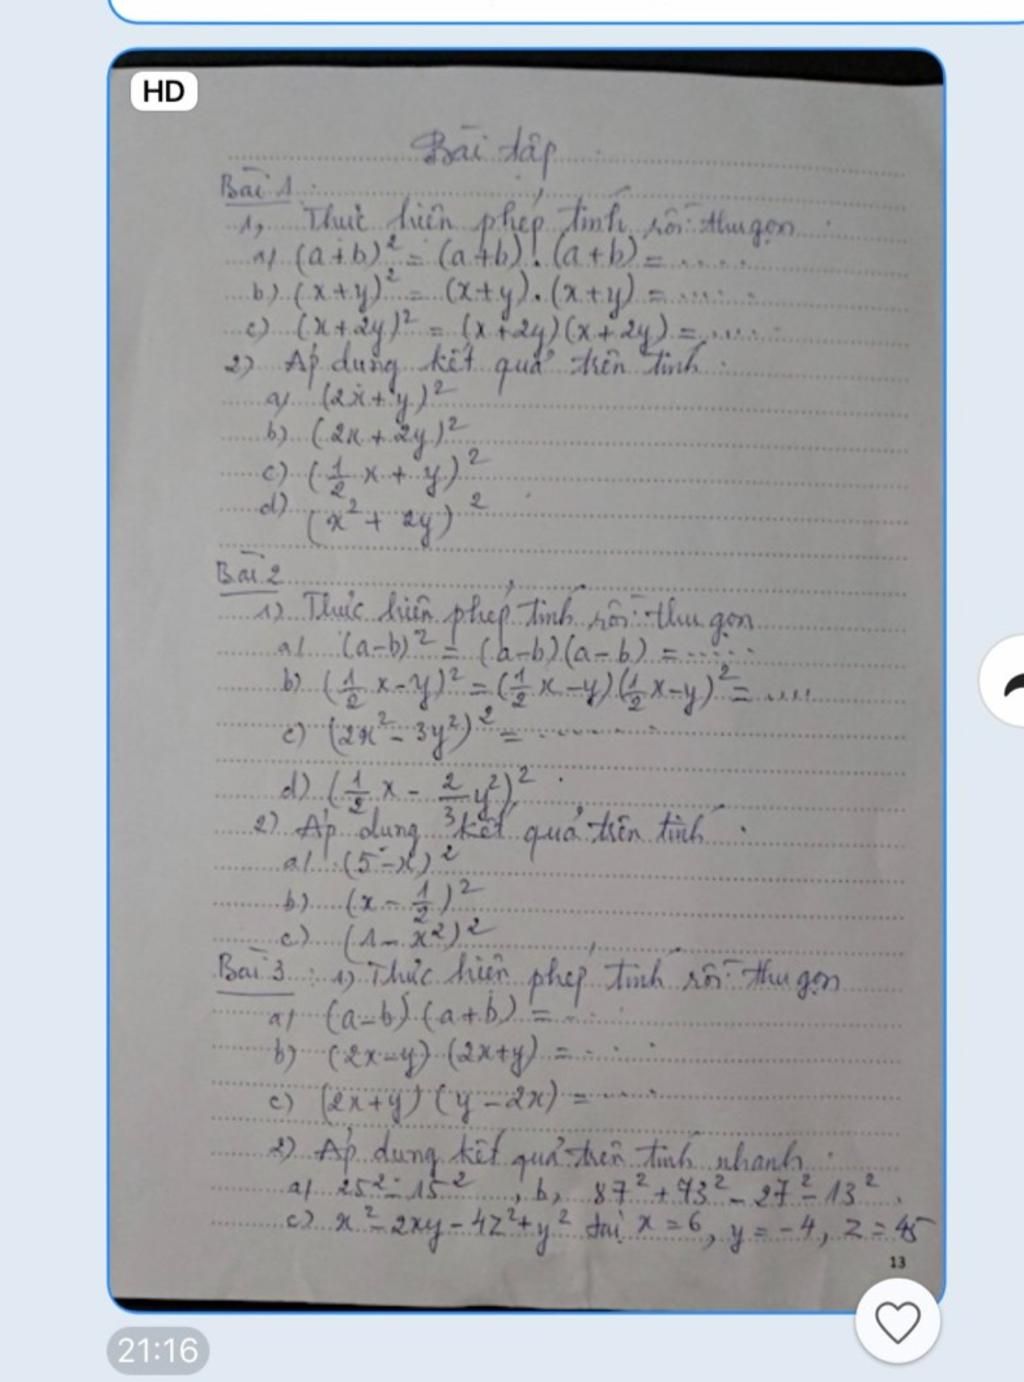 HD
Bài tập
Bài 1 :
1, Thực hiện phép tính rồi thu gọn
a) (a+b)² = (a+b).(a+b) = .....
b) (x+y)² = (x+y).(x+y) = .....
c) (x+2y)² = (x+2y)(x+2y) = .....
2) Áp dụng kết quả trên tính :
a) (2x+y)²
b) (2x+2y)²
c) (1/2 x + y)²
d) (x² + 2y)²
Bài 2
1) Thực hiện phép tính rồi thu gọn
a) (a-b)² = (a-b)(a-b) = .....
b) (1/2 x - y)² = (1/2 x - y)(1/2 x - y)² = ....
c) (2x² - 3y²)² = .......
d) (1/2 x - 2/3 y²)²
2) Áp dụng kết quả trên tính :
a) (5-x)²
b) (x - 1/2)²
c) (1 - x²)²
Bài 3 : 1) Thực hiện phép tính rồi thu gọn
a) (a-b)(a+b) = ...
b) (2x-y)(2x+y) = ....
c) (2x+y)(y-2x) = .....
2) Áp dụng kết quả trên tính nhanh :
a) 25² - 15² , b, 87² + 73² - 27² - 13²
c) x² - 2xy - 4z² + y² tại x = 6, y = -4, z = 45
13
21:16